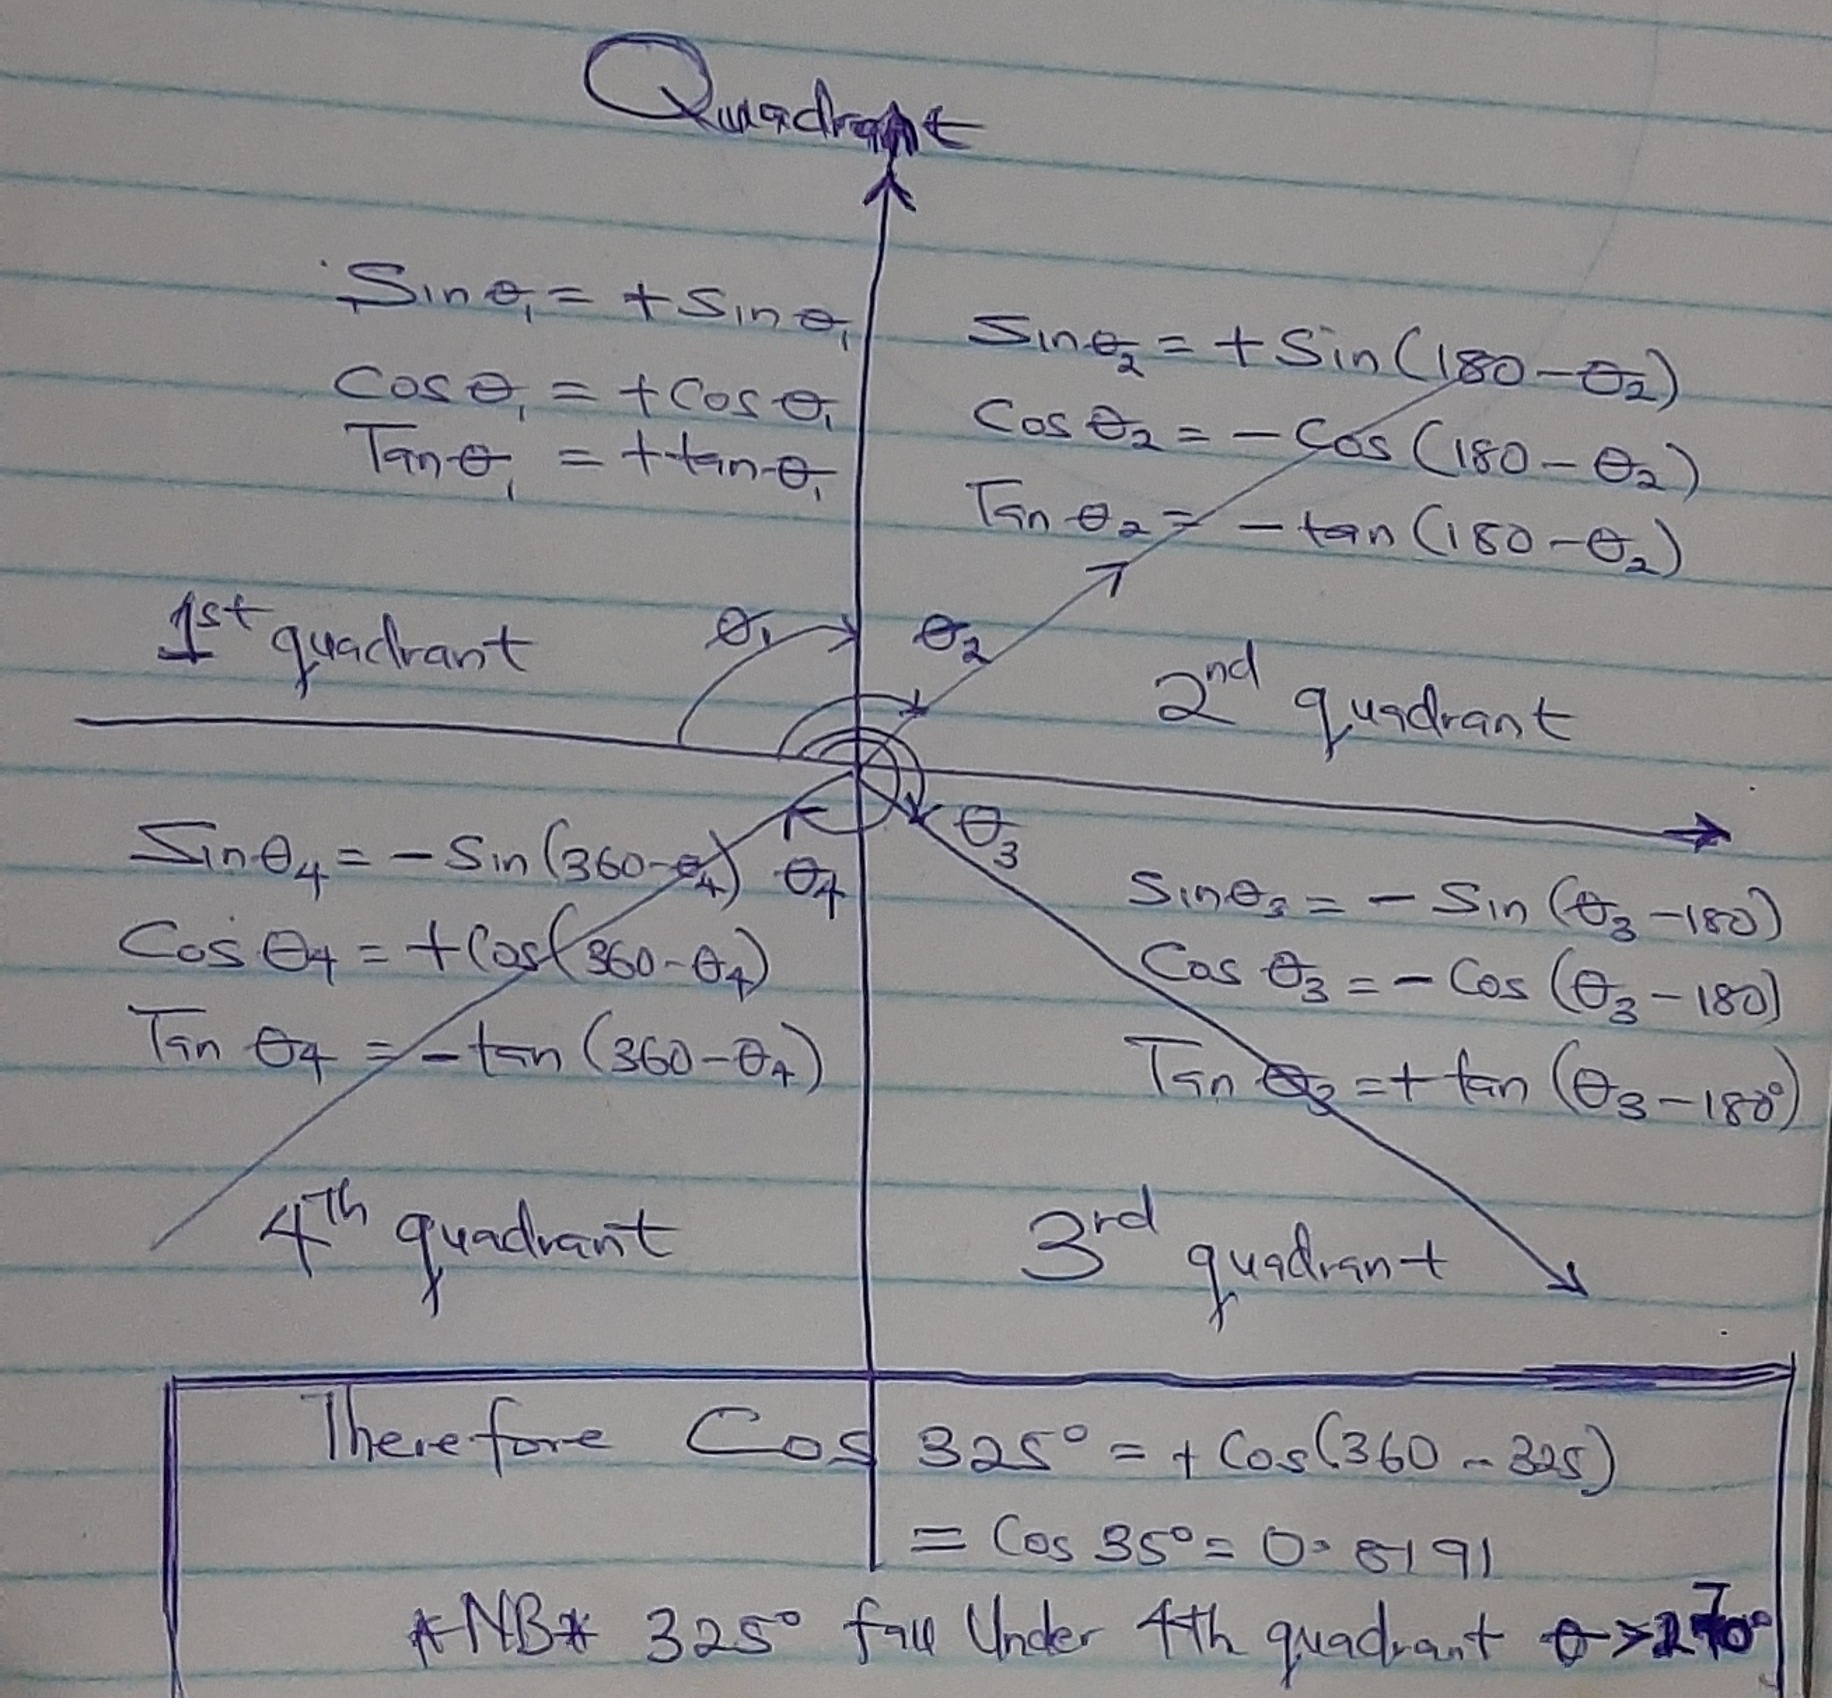 Quadrant
Sinθ₁ = +Sinθ₁
Cosθ₁ = +Cosθ₁
Tanθ₁ = +tanθ₁
Sinθ₂ = +Sin(180-θ₂)
Cosθ₂ = -Cos(180-θ₂)
Tanθ₂ = -tan(180-θ₂)
1st quadrant
θ₁
θ₂
2nd quadrant
Sinθ₄ = -Sin(360-θ₄)
Cosθ₄ = +Cos(360-θ₄)
Tanθ₄ = -tan(360-θ₄)
θ₄
θ₃
Sinθ₃ = -Sin(θ₃-180)
Cosθ₃ = -Cos(θ₃-180)
Tanθ₃ = +tan(θ₃-180°)
4Th quadrant
3rd quadrant
Therefore Cos 325° = +Cos(360-325)
= Cos 35° = 0.8191
*NB* 325° fall Under 4th quadrant θ>270°